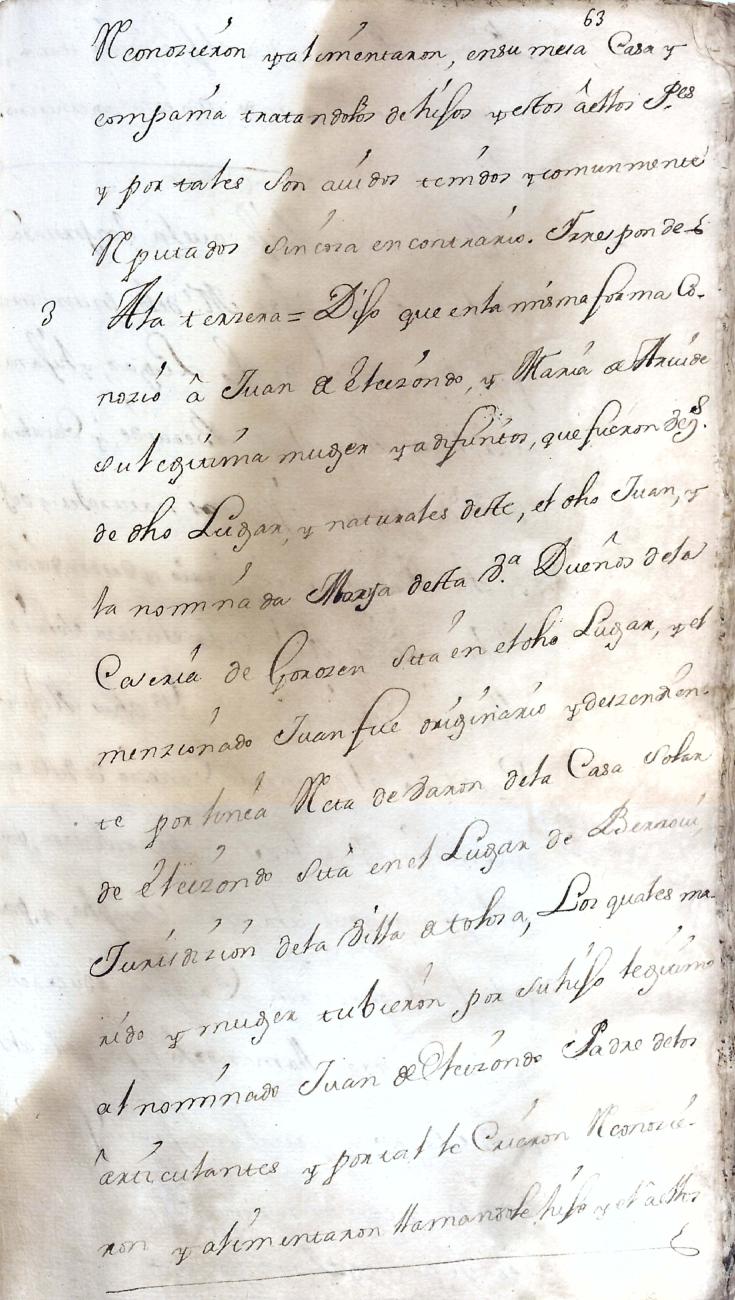 63
Reconozieron y alimentaron, en su mesa Casa y
compañia tratandolos de hijos y estos â ellos Pes
y por tales son auidos tenidos y comunmente
Reputados sin cosa en contrario. Y responde
3 A la terzera = Dijo que en la misma forma Co-
nozio â Juan de Eleizondo, y Maria de
su legitima muger ya difuntos, que fueron
de dho Lugar, y naturales de el dho Juan, y
la nominada Maria desta Va. Dueños de la
Caseria de Gorozen sita en el dho Lugar, y el
menzionado Juan fue originario y dezendien-
te por linea Reta de Varon de la Casa Solar
de Eleizondo sita en el Lugar de Berroui,
Jurisdizion de la Villa de tolosa, Los quales ma-
rido y muger tubieron por su hijo legitimo
al nominado Juan de Eleizondo Padre de los
ârticulantes y por tal le Crieron Reconozie-
ron y alimentaron llamandole hijo y el a ellos